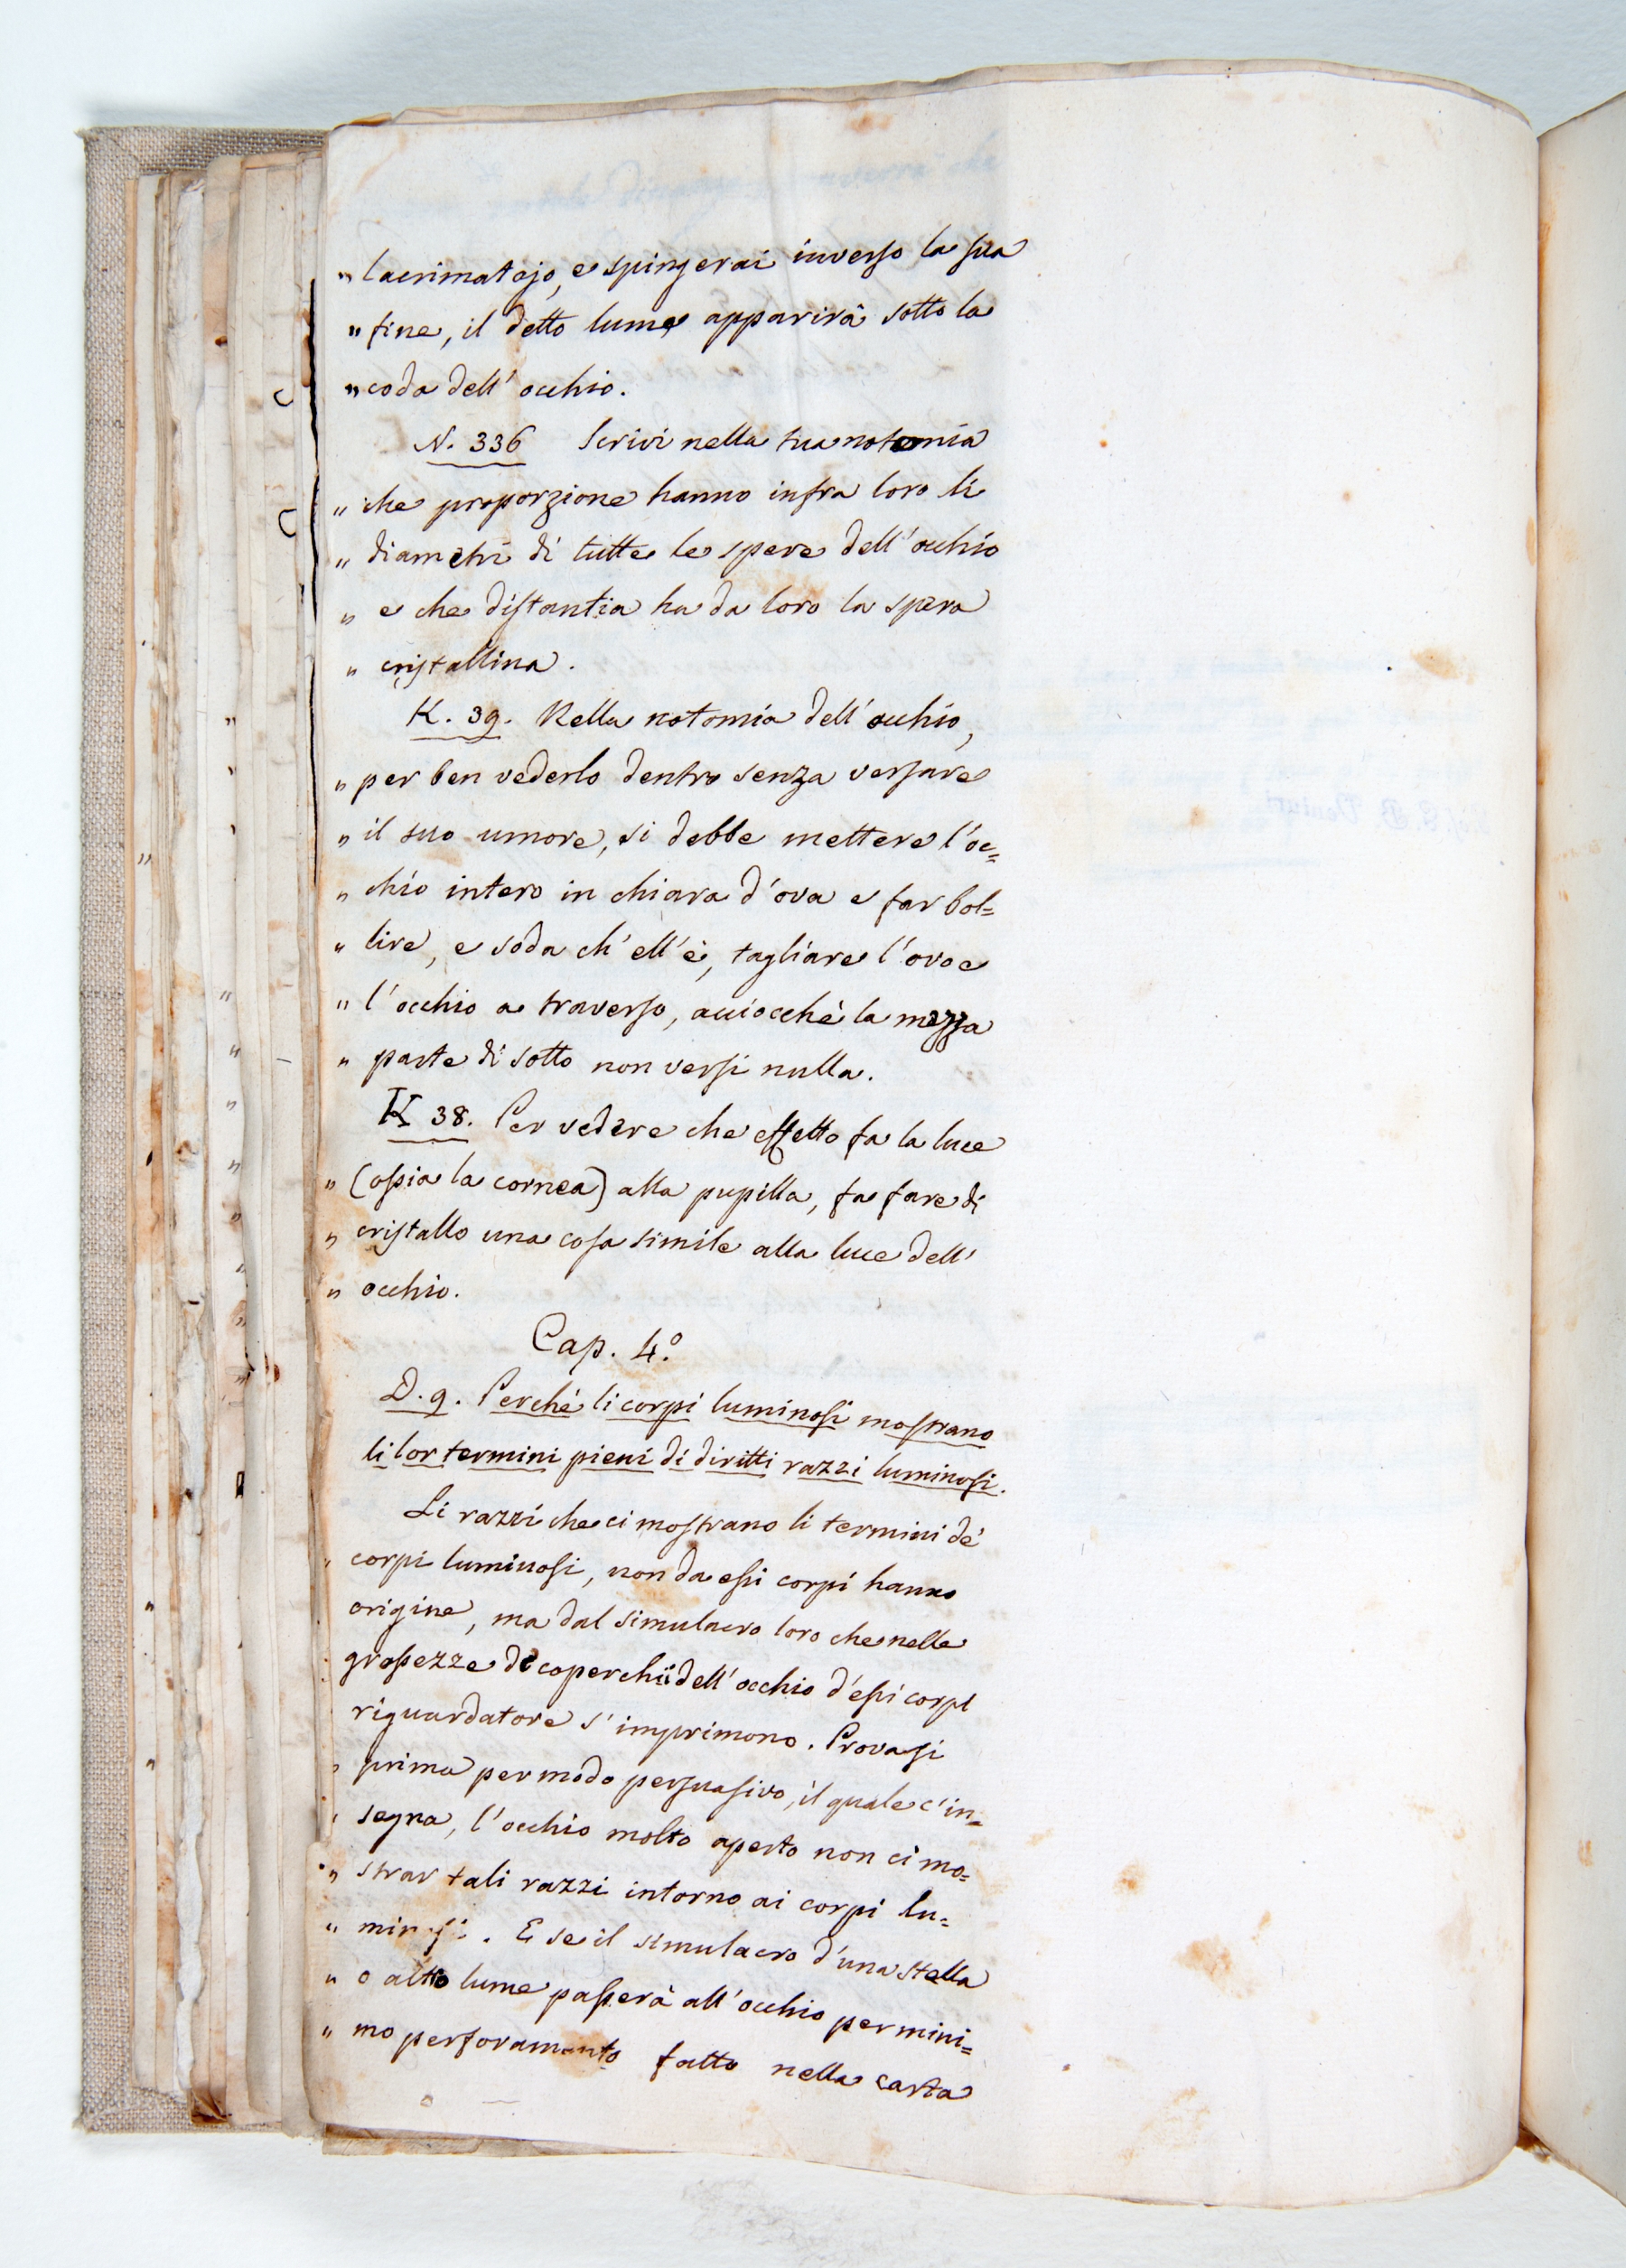 " lacrimatojo, e spingerai inverso la sua
" fine, il detto lume apparirà sotto la
" coda dell' occhio.
N. 336 Scrivi nella tua notomia
" che proporzione hanno infra loro li
" diametri di tutte le spere dell' occhio
" e che distantia ha da loro la spera
" cristallina.
K. 39. Nella notomia dell' occhio,
" per ben vederlo dentro senza versare
" il suo umore, si debbe mettere l'oc=
" chio intero in chiara d'ova e far bol=
" lire, e soda ch' ell' è, tagliare l'ovo e
" l' occhio a traverso, acciocchè la mezza
" parte di sotto non versi nulla.
K 38. Per vedere che effetto fa la luce
" (ossia la cornea) alla pupilla, fa fare di
" cristallo una cosa simile alla luce dell'
" occhio.
Cap. 4.º
D. 9. Perché li corpi luminosi mostrano
li lor termini pieni di diritti razzi luminosi.
Li razzi che ci mostrano li termini de'
" corpi luminosi, non da essi corpi hanno
origine, ma dal simulacro loro che nelle
grossezze de coperchii dell' occhio d'essi corpi
riguardatore s' imprimono. Provasi
" prima per modo persuasivo, il quale c'in=
" segna, l' occhio molto aperto non ci mo=
" strar tali razzi intorno ai corpi lu=
" minosi. E se il simulacro d'una stella
" o altro lume passerà all' occhio per mini=
" mo perforamento fatto nella carta